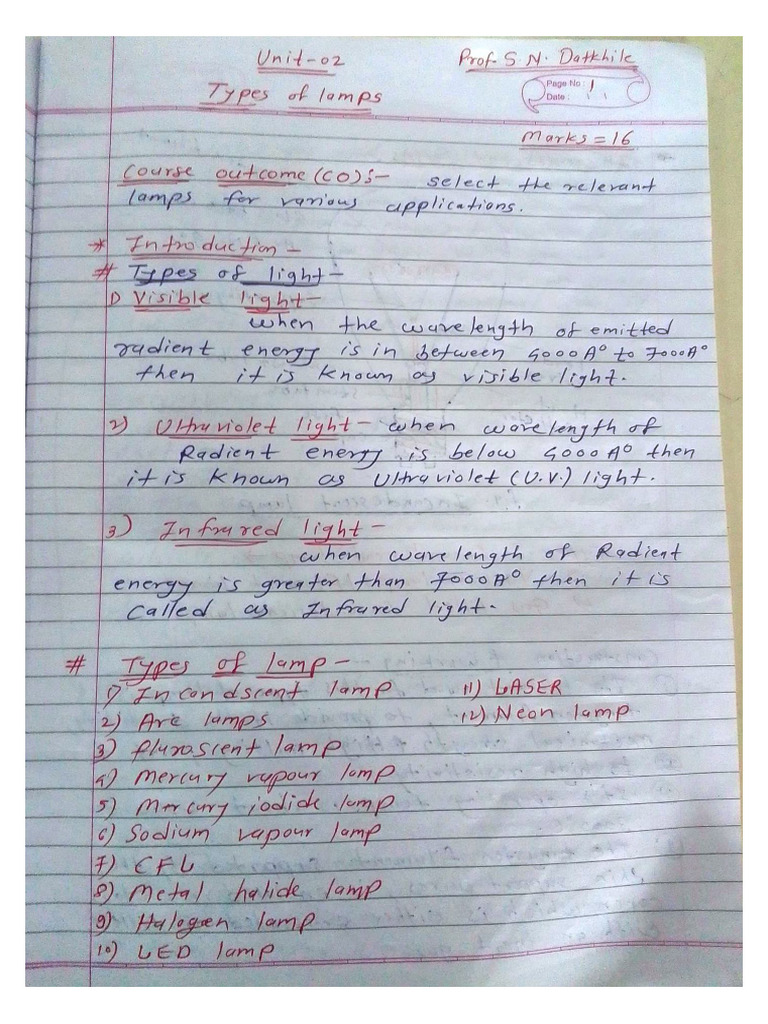 Unit-02
Prof. S. N. Datkhile
Types of lamps
Page No: 1
Date:
Marks = 16
Course outcome (CO):- select the relevant
lamps for various applications.
* Introduction -
# Types of light -
1) Visible light -
when the wavelength of emitted
radient energy is in between 4000A° to 7000A°
then it is known as visible light.
2) Ultraviolet light - when wavelength of
Radient energy is below 4000A° then
it is known as Ultraviolet (U.V.) light.
3) Infrared light -
when wavelength of Radient
energy is greater than 7000A° then it is
called as Infrared light.
# Types of lamp -
1) Incondscent lamp
2) Arc lamps
3) fluroscent lamp
4) mercury vapour lamp
5) Mercury iodide lamp
6) Sodium vapour lamp
7) CFL
8) Metal halide lamp
9) Halogen lamp
10) LED lamp
11) LASER
12) Neon lamp